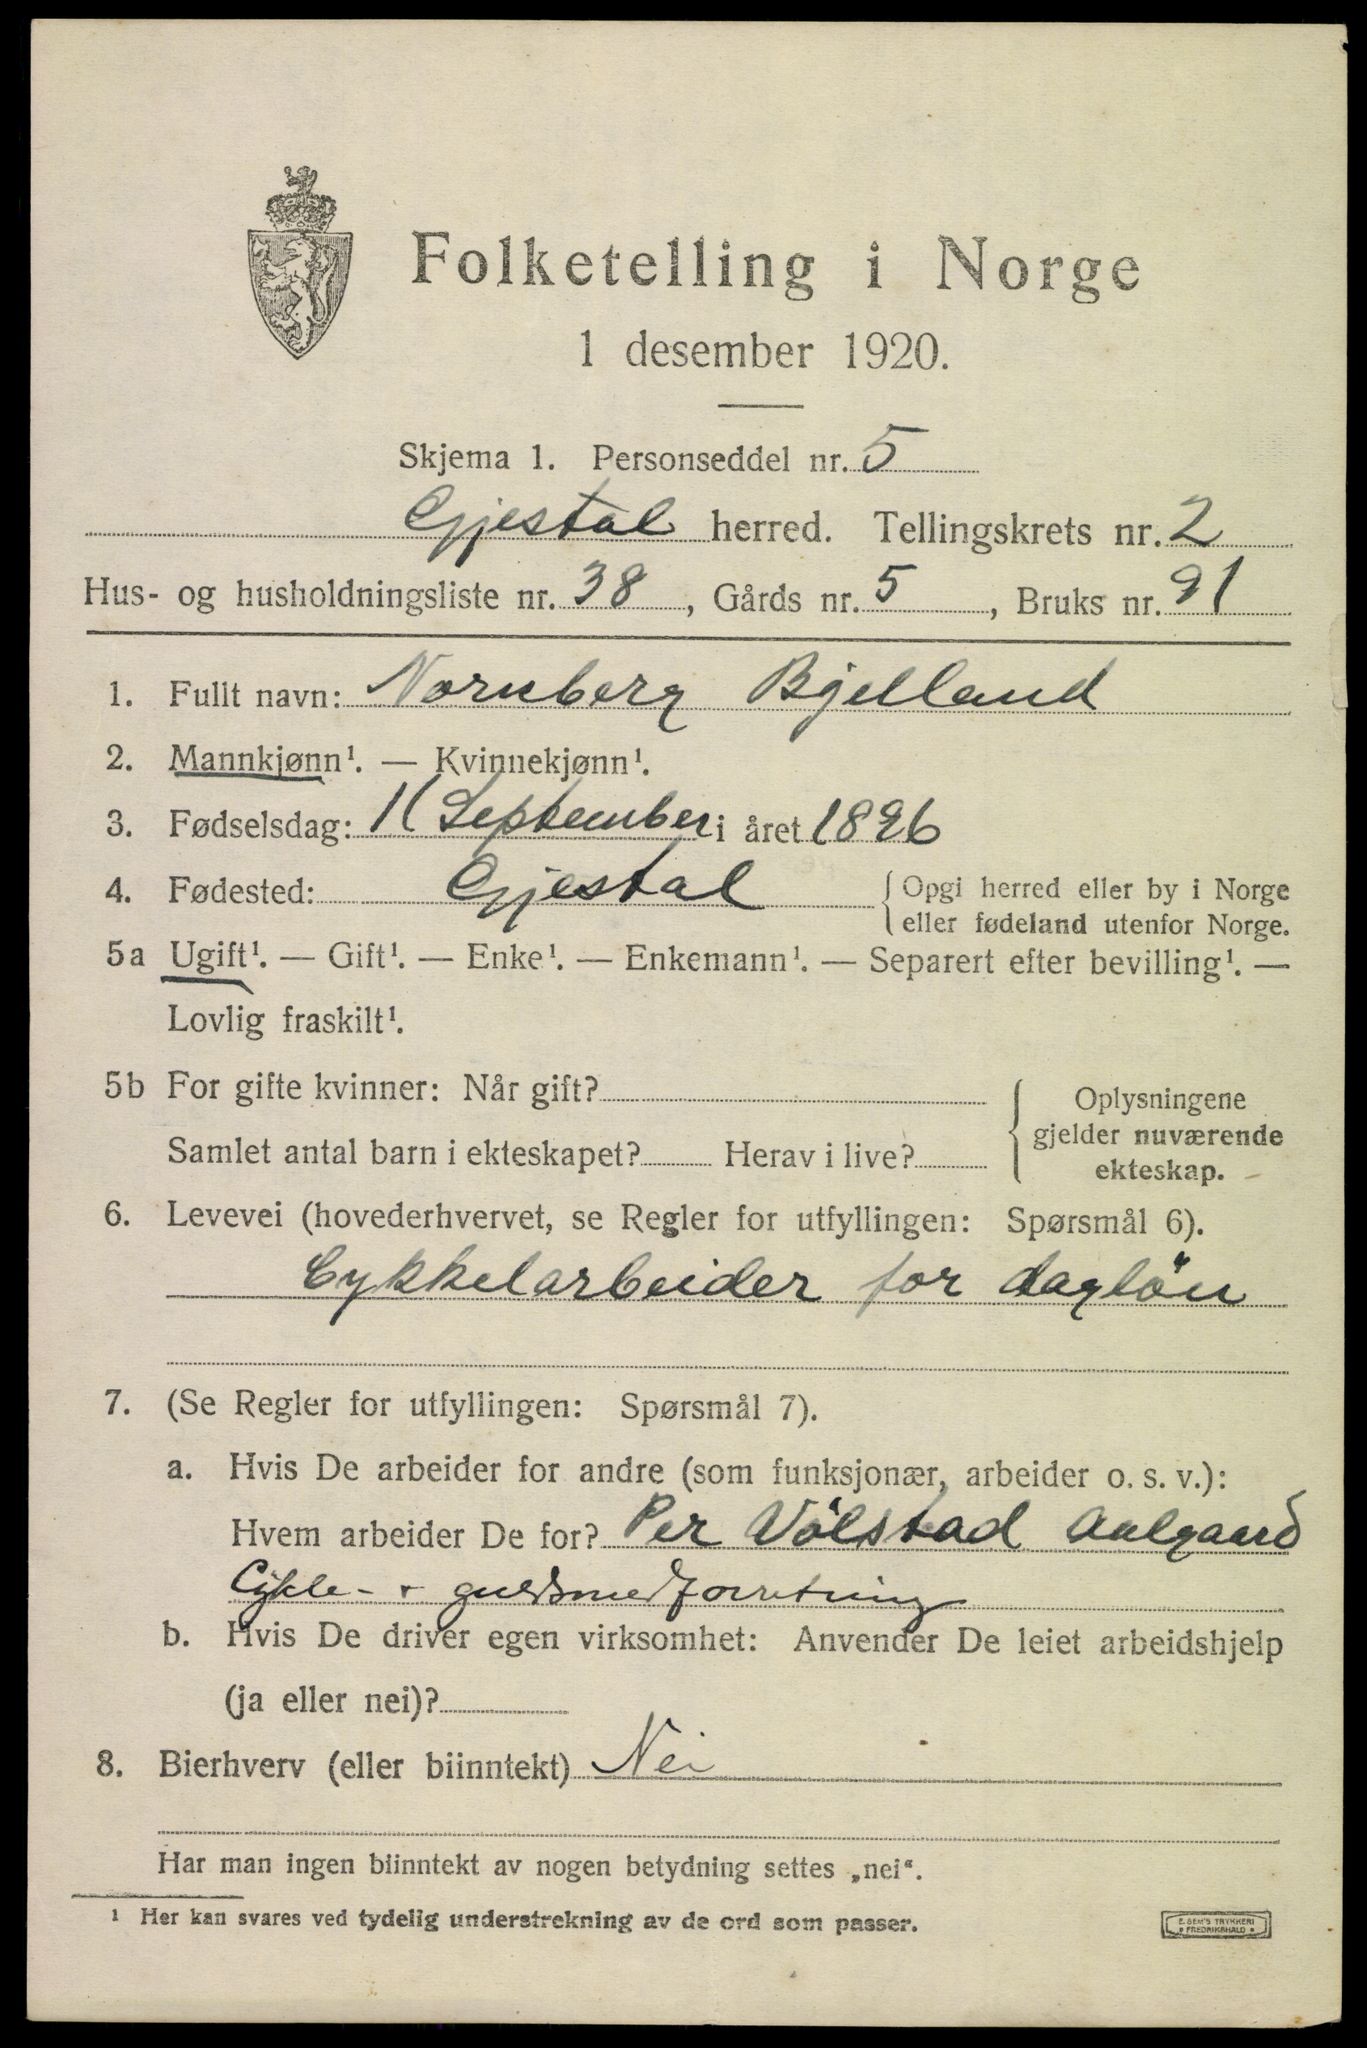 Folketelling i Norge
1 desember 1920.
Skjema 1. Personseddel nr. 5
Gjestal herred. Tellingskrets nr. 2
Hus- og husholdningsliste nr. 38, Gårds nr. 5, Bruks nr. 91
1. Fullt navn: Nornberg Bjelland
2. Mannkjønn¹. — Kvinnekjønn¹.
3. Fødselsdag: 11 September i året 1896
4. Fødested: Gjestal { Opgi herred eller by i Norge
eller fødeland utenfor Norge.
5a Ugift¹. — Gift¹. — Enke¹. — Enkemann¹. — Separert efter bevilling¹. —
Lovlig fraskilt¹.
5b For gifte kvinner: Når gift?
Samlet antal barn i ekteskapet? Herav i live?
Oplysningene
gjelder nuværende
ekteskap.
6. Levevei (hovederhvervet, se Regler for utfyllingen: Spørsmål 6).
Cykkelarbeider for daglön
7. (Se Regler for utfyllingen: Spørsmål 7).
a. Hvis De arbeider for andre (som funksjonær, arbeider o. s. v.):
Hvem arbeider De for? Per Vølstad Aalgaard
Cykle- + guldsmedforretning
b. Hvis De driver egen virksomhet: Anvender De leiet arbeidshjelp
(ja eller nei)?
8. Bierhverv (eller biinntekt) Nei
Har man ingen biinntekt av nogen betydning settes „nei“.
¹ Her kan svares ved tydelig understrekning av de ord som passer.
E. SEM'S TRYKKERI
FREDRIKSHALD